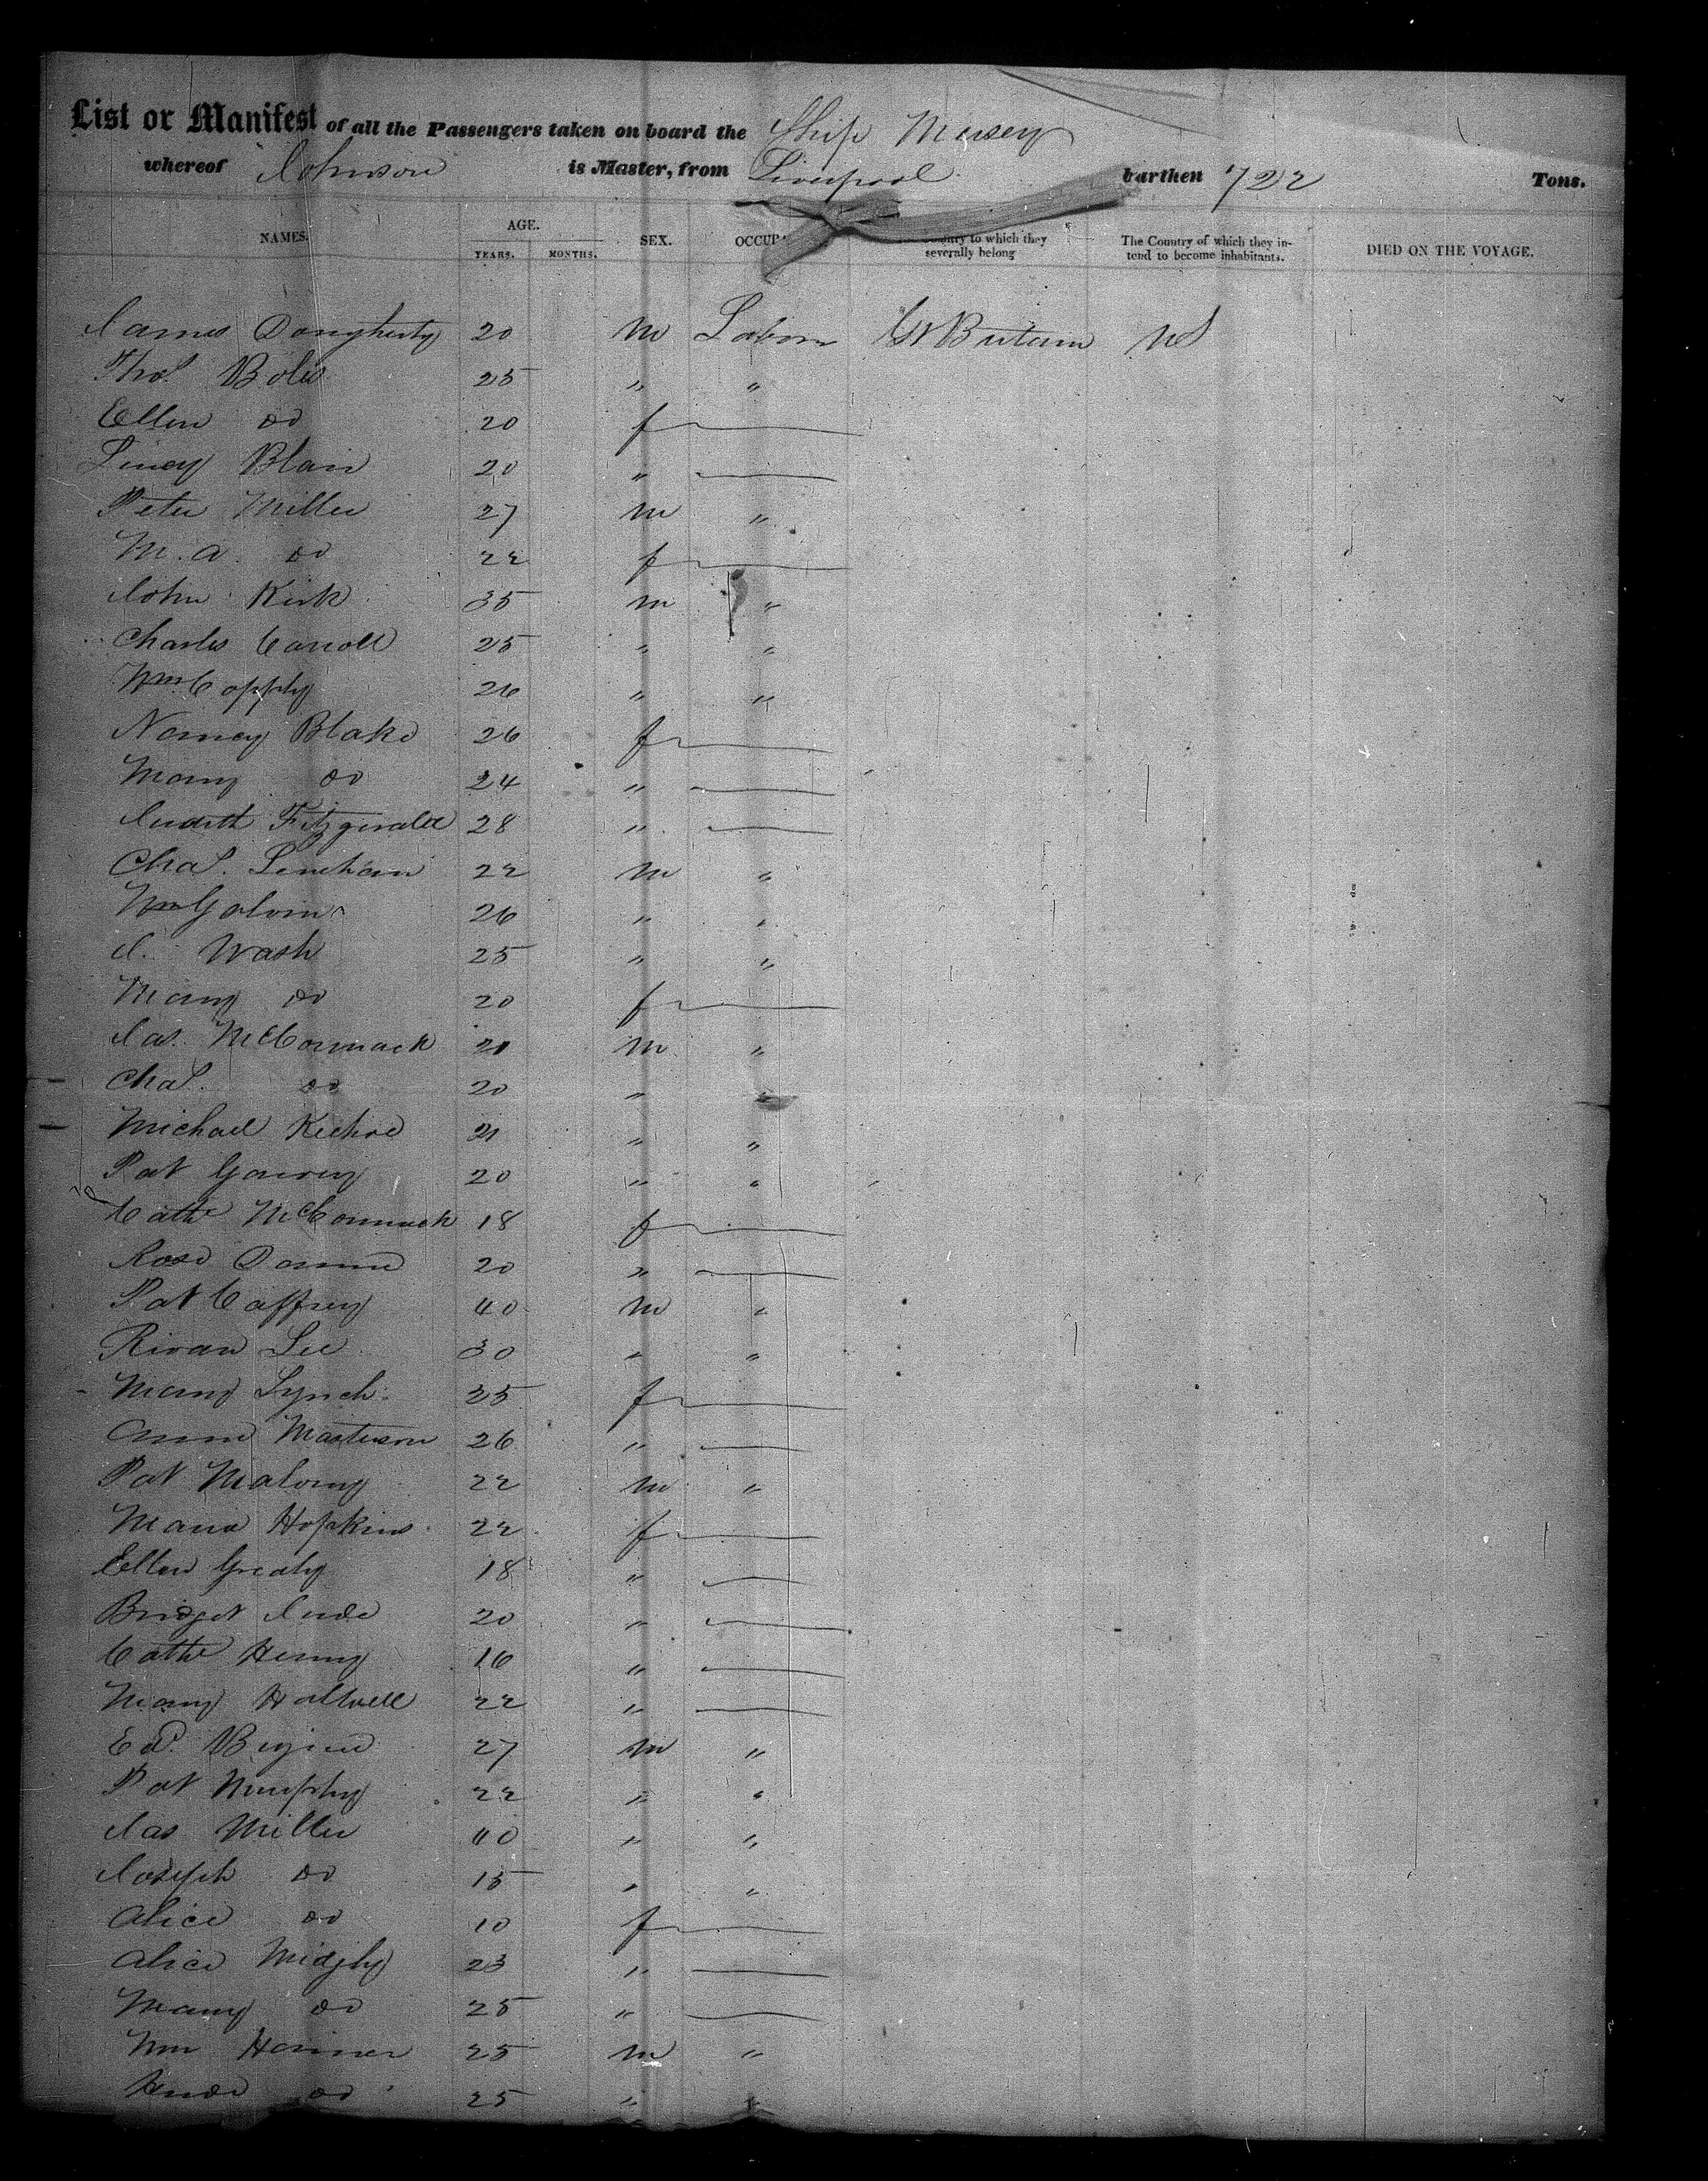 List or Manifest of all the Passengers taken on board the Ship Mersey
whereof Johnson is Master, from Liverpool burthen 722 Tons.
NAMES. AGE. YEARS. MONTHS. SEX. OCCUP country to which they severally belong The Country of which they intend to become inhabitants. DIED ON THE VOYAGE.
James Dougherty 20 m Labor Gt Britain US
Thos. Boles 25 " "
Ellen do 20 f
Lucy Blair 20 "
Peter Miller 27 m "
M. A. do 22 f
John Kirk 35 m "
Charles Carroll 25 " "
Wm Copply 26 " "
Nancy Blake 26 f
Mary do 24 "
Judith Fitzgerald 28 "
Chas. Linehan 22 m "
Wm Galvin 26 " "
J. Wash 25 " "
Mary do 20 f
Jas. McCormack 21 m "
Chas. do 20 " "
Michael Keehoe 21 " "
Pat 20 " "
Cathe McCormack 18 f
Rose 20 "
Pat Caffrey 40 m "
Lee 30 " "
Mary Lynch 25 f
Anne Masterson 26 "
Pat Malony 22 m "
Maria Hopkins 22 f
Ellen Greahy 18 "
Bridget Jude 20 "
Cathe Henry 16 "
Mary Hallwell 22 "
Ed. 27 m "
Pat Murphy 22 " "
Jas Miller 40 " "
Joseph do 15 " "
Alice do 10 f
Alice Midgly 23 "
Mary do 25 "
Wm Hanner 25 m "
do 25 " "